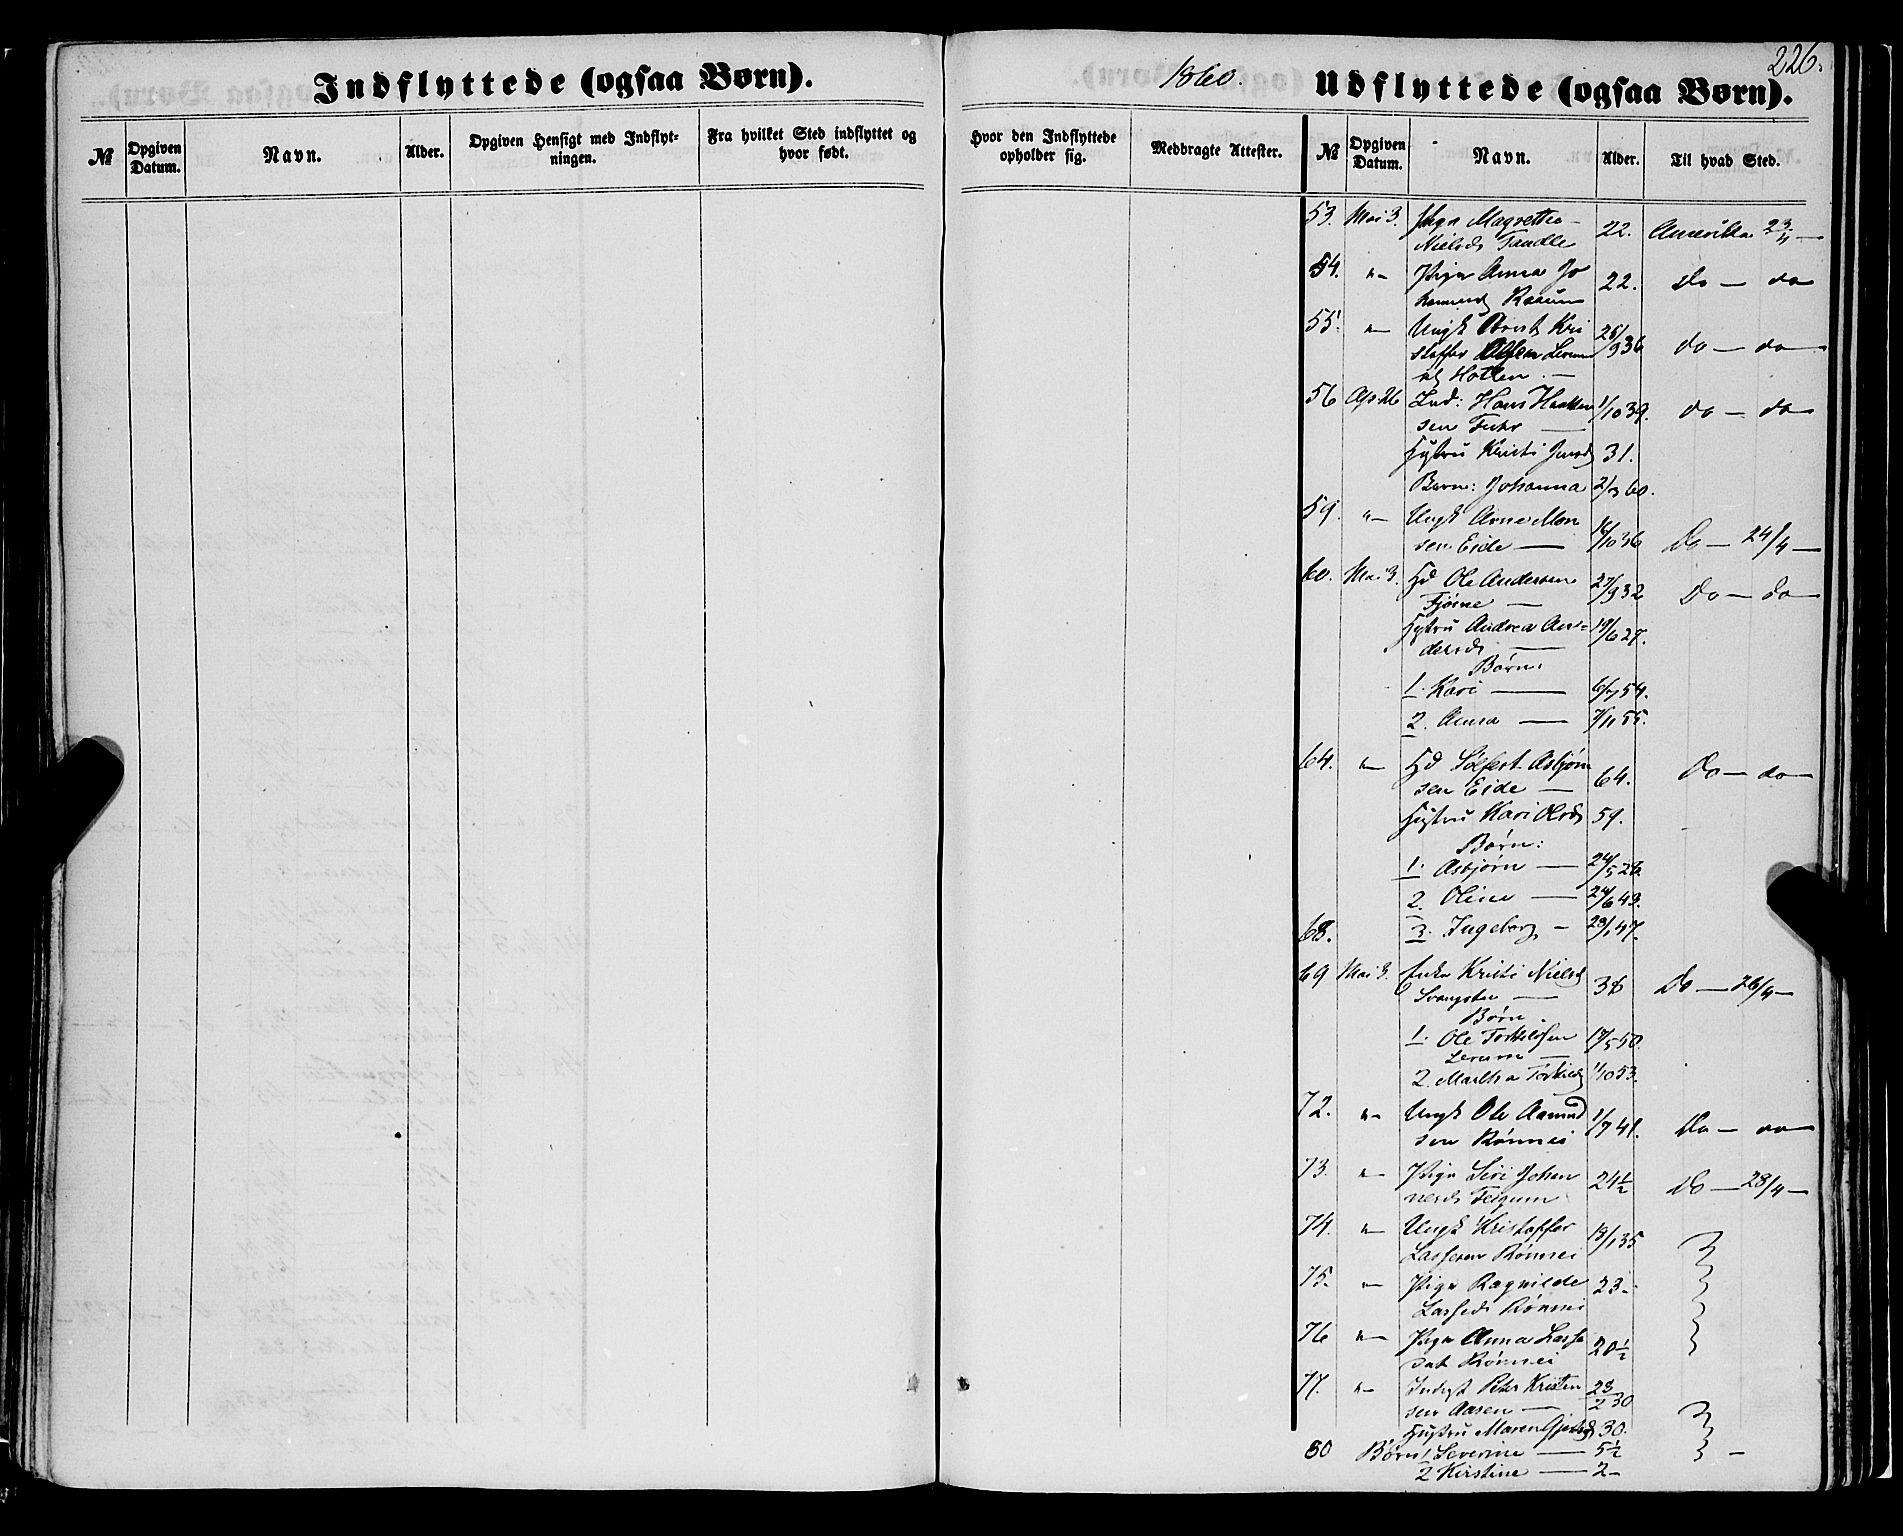 226.
Indflyttede (ogsaa Børn).
1860.
Udflyttede (ogsaa Børn).
№ Opgiven Datum. Navn. Alder. Opgiven Hensigt med Indflyt-
ningen. Fra hvilket Sted indflyttet og
hvor født. Hvor den Indflyttede
opholder sig. Medbragte Attester. № Opgiven Datum. Navn. Alder. Til hvad Sted.
53. Mai 3. Pige Magrethe
Nielsd Tandle 22. Amerika 23/4 —
54. "— Pige Anna Jo
hannesd 22. Do — do
55. "— Ungk Kri
stoffer 25/9 36 do — do —
Hatlen —
56 Apr 26 Ind: Hans Haaken
sen Fuhr — 1/10 39. do — do
Hustru Kristi Jensd 31.
Barn: Johanna 2/3 60.
59. "— Ungk Arne Mon
sen Eide — 16/10 36 Do — 24/4 —
60. Mai 3. Gd Ole Andersen
Fjørne — 27/9 32 Do — do —
Hustru Andrea An-
dersd — 19/6 27.
Børn:
1. Kari — 6/7 54.
2. Anna — 7/11 55.
64. "— Gd Sølfest Asbjørn
sen Eide — 64. Do — do —
Hustru Kari Olsd 59.
Børn:
1. Asbjørn — 24/5 26.
2. Oline — 24/6 43.
68. 3. Ingeborg — 23/1 47.
69 Mai 3. Enke Kristi Nielsd
— 38 Do — 26/4 —
Børn.
1. Ole Torkelsen 17/5 50.
Lerum —
2. Martha Torkelsd 1/10 53.
72. "— Ungk Ole Aamund
sen Rønnei 1/7 41. Do — do —
73. "— Pige Siri Johan
nesd Feigum 24½ Do — 28/4 —
74. "— Ungk Kristoffer
Lassesen Rønnei 13/1 35
75. "— Pige Ragnilde
Lassesd Rønnei 23 —
76 "— Pige Anna Lasse
dat Rønnei 20½
77. "— Inderst Peter Kristen
sen Aasen — 23/2 30
Hustru Maren 30.
80 Børn 1 Severine — 5½ —
2 Kirstine — 2 —